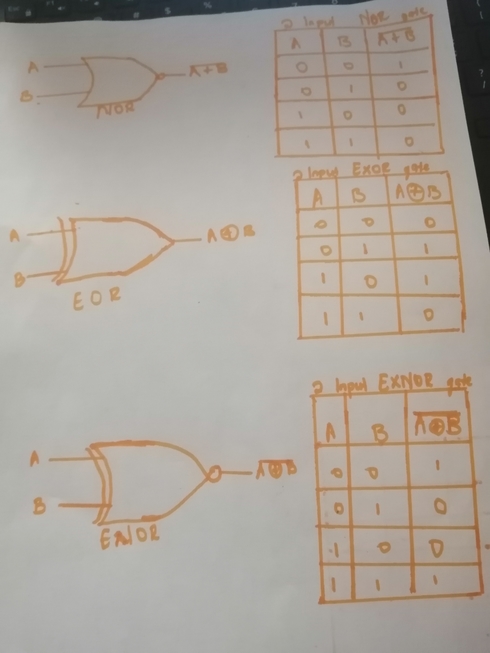 2 Input NOR gate
A B A̅+̅B̅
0 0 1
0 1 0
1 0 0
1 1 0
A
B
A̅+̅B̅
NOR
2 Input EXOR gate
A B A⊕B
0 0 0
0 1 1
1 0 1
1 1 0
A
B
A⊕B
EOR
2 Input EXNOR gate
A B A̅⊕̅B̅
0 0 1
0 1 0
1 0 0
1 1 1
A
B
A̅⊕̅B̅
EXNOR